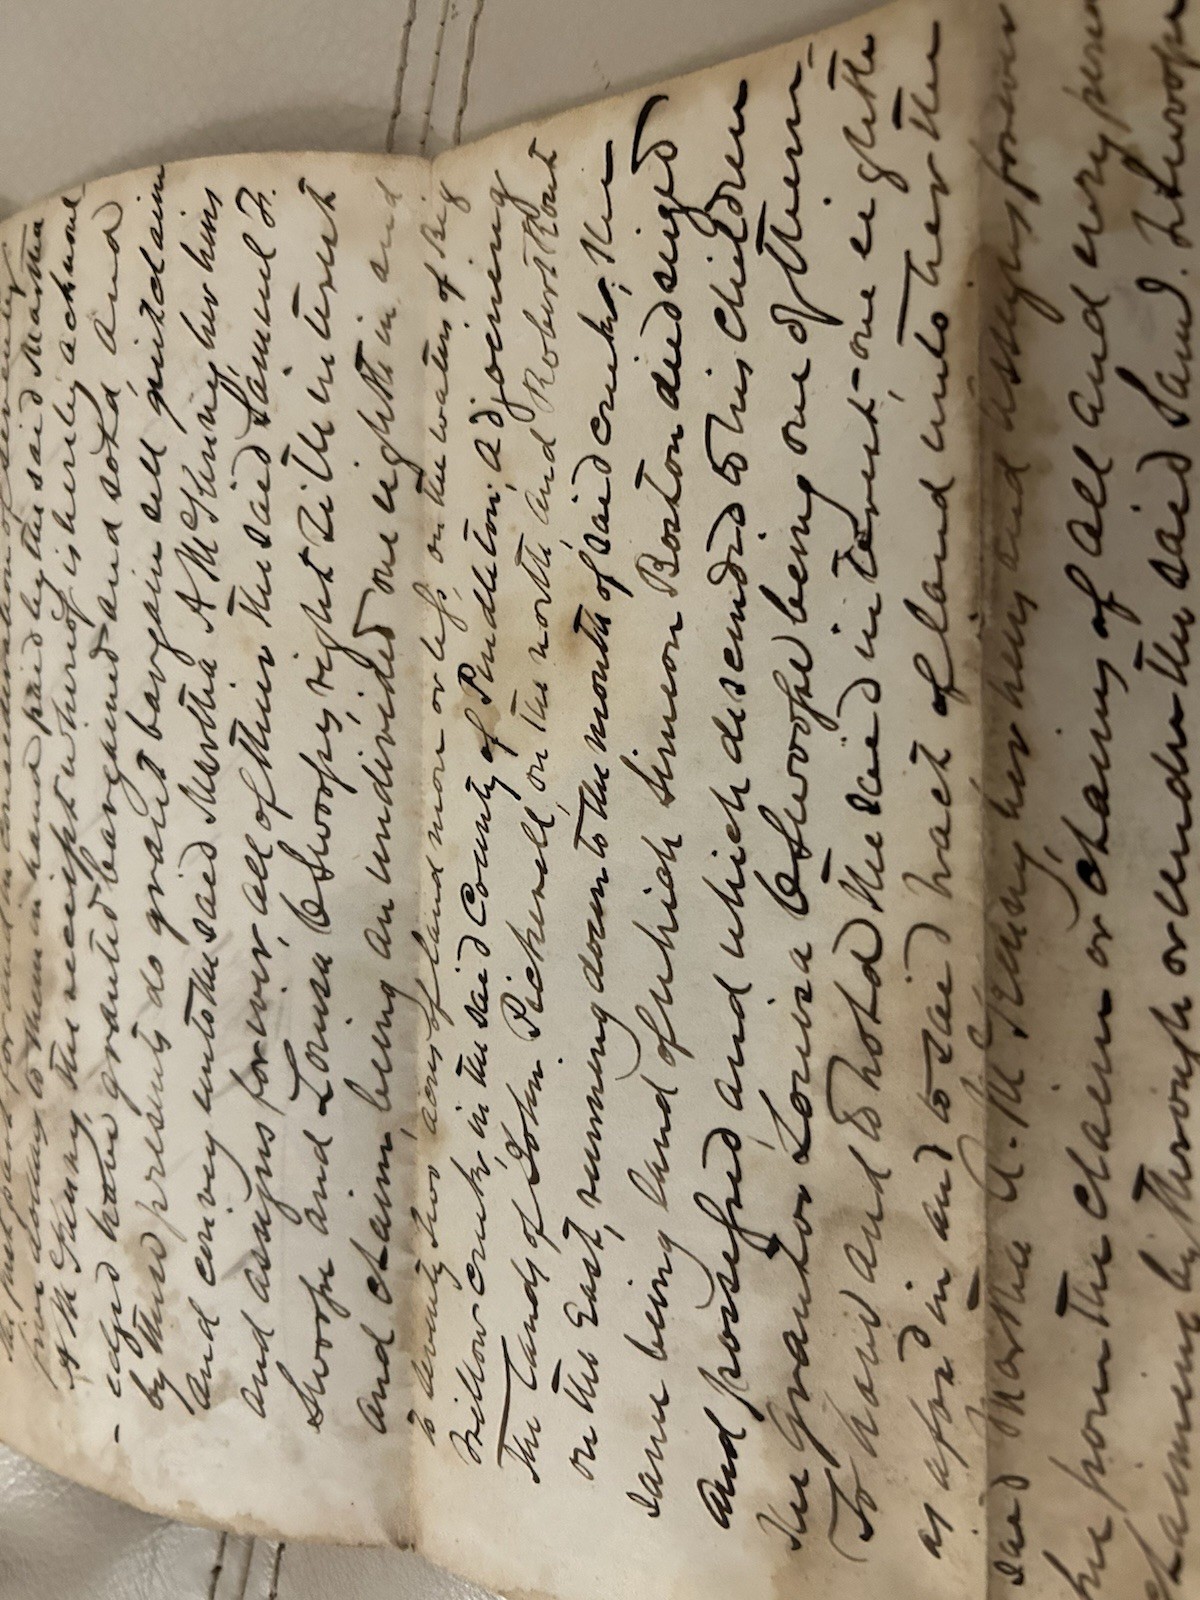 the first part for and in consideration of seventy
five dollars to them in hand paid by the said Martha
A McGinny, the receipt whereof is hereby acknowl
-edged have granted bargained and sold, and
by these presents do grant bargain sell quitclaim
and convey unto the said Martha A McGinny her heirs
and assigns forever, all of their the said Samuel F.
Swoope and Louisa C Swoope's, right title interest
and claim, being an undivided one eighth in and
to seventy two acres of land more or less, on the waters of Big
Willow creek, in the said County of Pendleton; adjoining
The lands of John Pickerell, on the north and Robert
on the East, running down to the mouth of said creek, the
same being land of which Simeon Boston died seized
and possessed and which descended to his children
the grantor Louisa C Swoope being one of them-
To have and to hold the said interest, one eighth
as afors'd in and to said tract of land unto her the
said Martha A. McGinny her heirs and assigns forever
free from the claim or claims of all and every person
claiming by through or under the said Saml. F Swoope